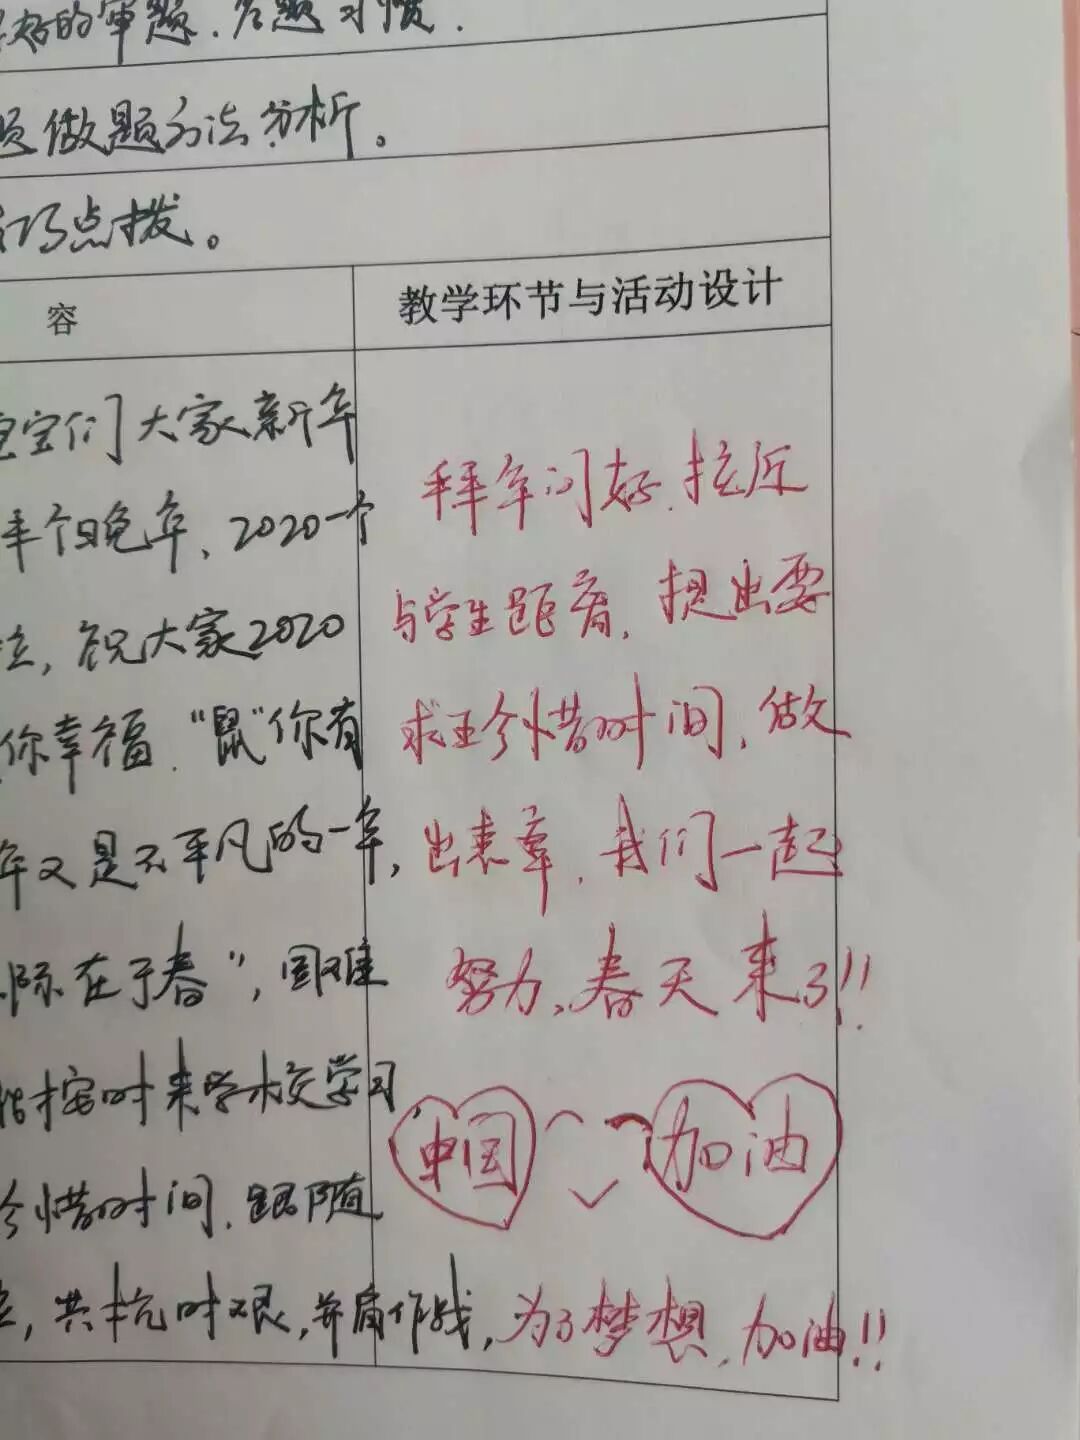 好的审题、答题习惯.
做题方法分析。
技巧点拨。
容
教学环节与活动设计
宝宝们大家新年
拜个晚年、2020一个
祝大家2020
你幸福."鼠"你有
年又是不平凡的一年,
际在于春",困难
按时来学校学习,
珍惜时间.跟随
共抗时艰,并肩作战,为了梦想.加油!!
拜年问好.拉近
与学生距离,提出要
求珍惜时间,做
出表率.我们一起
努力、春天来了!!
中国
加油